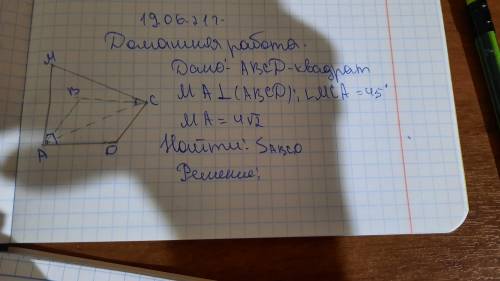 19.06.21г.
Домашняя работа.
Дано: ABCD-квадрат
MA⊥(ABCD); ∠MCA=45°
MA=4√2
Найти: SABCD
Решение:
M
B
C
A
D